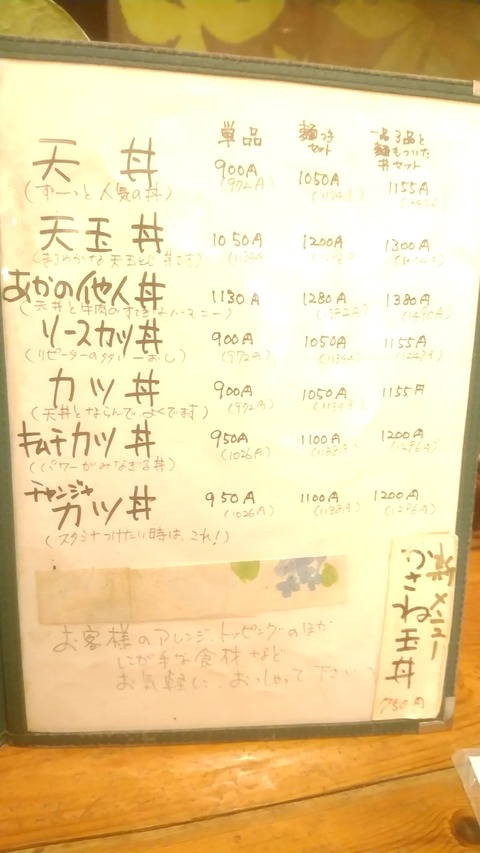 単品 麺つきセット 一品3品と麺もつけた丼セット
天丼 900円 1050円 1155円
(ずーっと人気の丼) (972円) (1134円)
天玉丼 1050円 1200円 1300円
(まろやかな天玉とじ丼です) (1134円)
あかの他人丼 1130円 1280円 1380円
(天丼と牛肉のすてきなハーモニー)
ソースカツ丼 900円 1050円 1155円
(リピーターの多い一おし) (972円) (1134円)
カツ丼 900円 1050円 1155円
(天丼とならんでよくでます) (972円) (1134円)
キムチカツ丼 950円 1100円 1200円
(パワーがみなぎる丼) (1026円) (1188円) (1296円)
チャンジャカツ丼 950円 1100円 1200円
(スタミナつけたい時は、これ!) (1026円) (1188円) (1296円)
お客様のアレンジ、トッピングのほか
にが手な食材など
お気軽に、おっしゃって下さい
新メニュー
かさね玉丼
750円